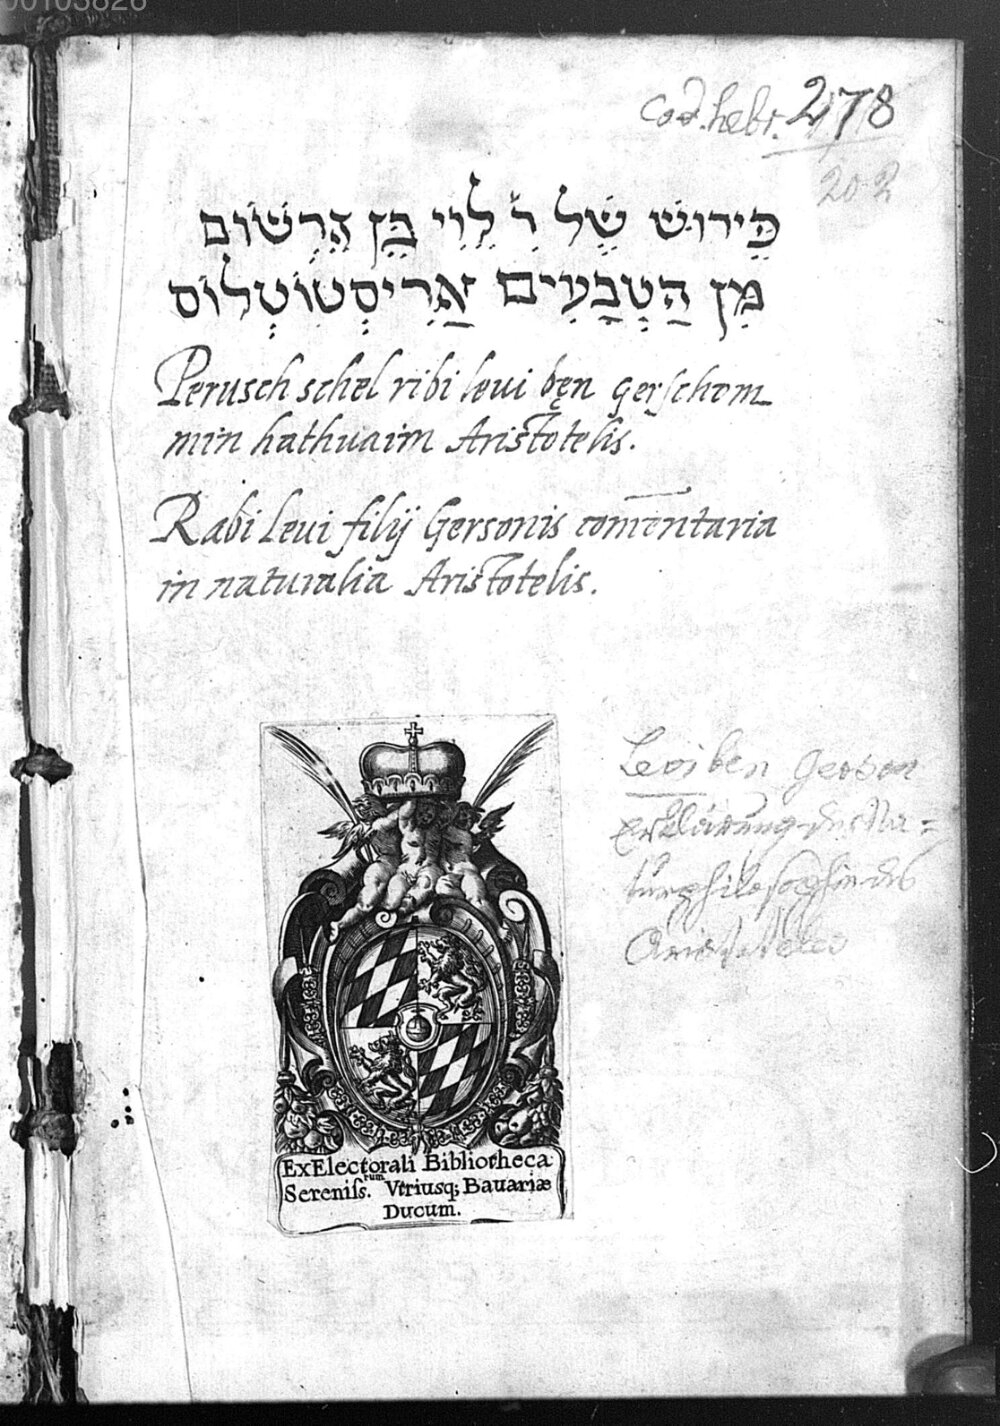 00103826
Cod. hebr. 278
202
פֵּירוּשׁ שֶׁל רִ֗ לֵוִי בֶּן גֶרְשׁוֹם
מִן הַטְבָעִים אַרִיסְטוֹטְלוֹס
Perusch schel ribi levi bęn gerschom
min hathvaim Aristotelis.
Rabi Levi filij Gersonis comētaria
in naturalia Aristotelis.
Levi ben Gerson
Erklärung der Na=
turphilosophie des
Aristoteles
Ex Electorali Bibliotheca
Sereniss.rum Vtriusq; Bauariæ
Ducum.